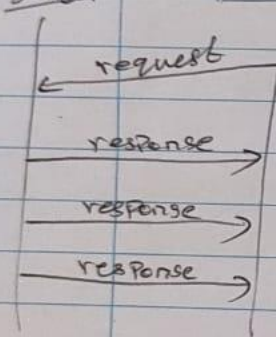 request
response
response
response